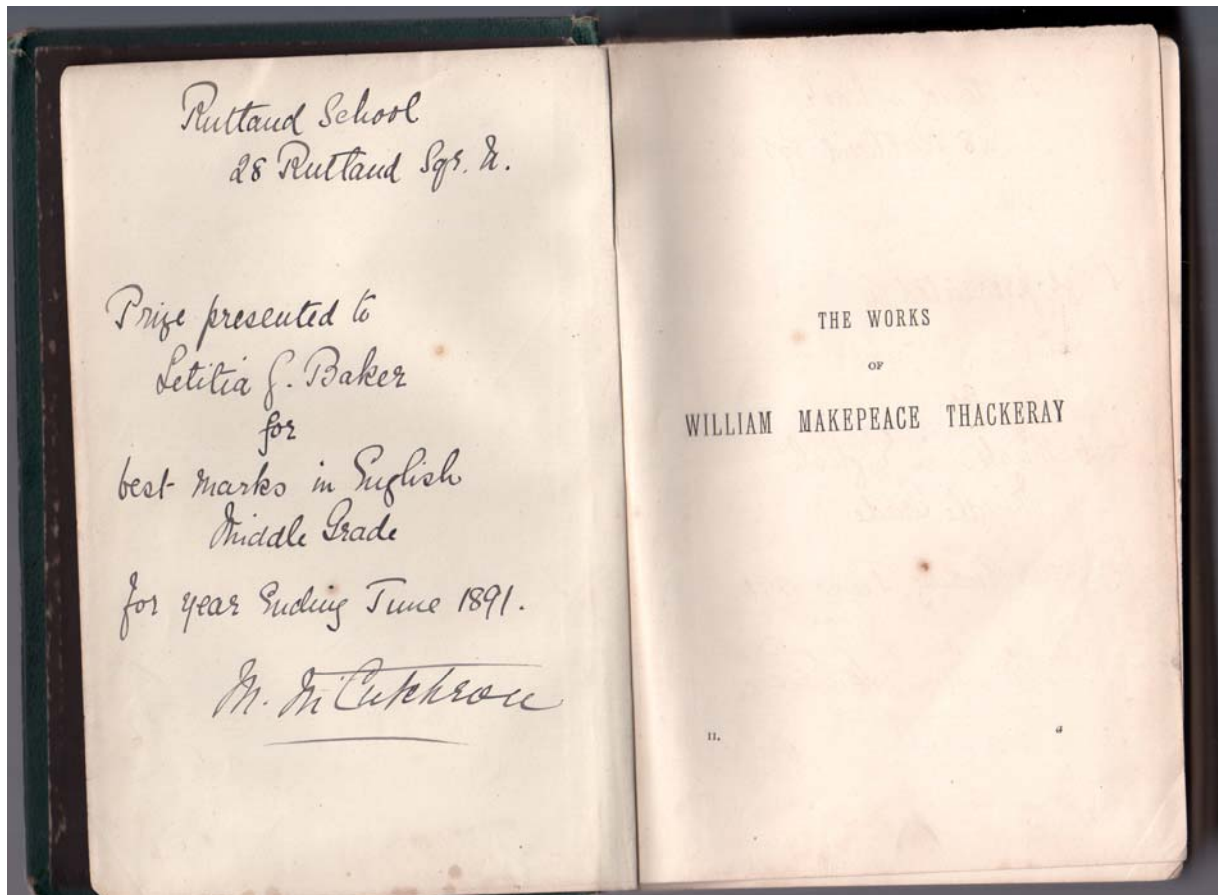 Rutland School
28 Rutland Sqr. N.
Prize presented to
Letitia G. Baker
for
best marks in English
Middle Grade
for year Ending June 1891.
M.
THE WORKS
OF
WILLIAM MAKEPEACE THACKERAY
II.
a